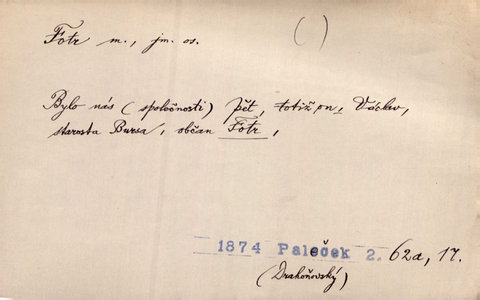 Fotr m., jm. os. ( )
Bylo nás (společnosti) pět, totiž pn, Václav,
starosta Bursa, občan Fotr,
1874 Paleček 2. 62a, 17.
(Drahoňovský)